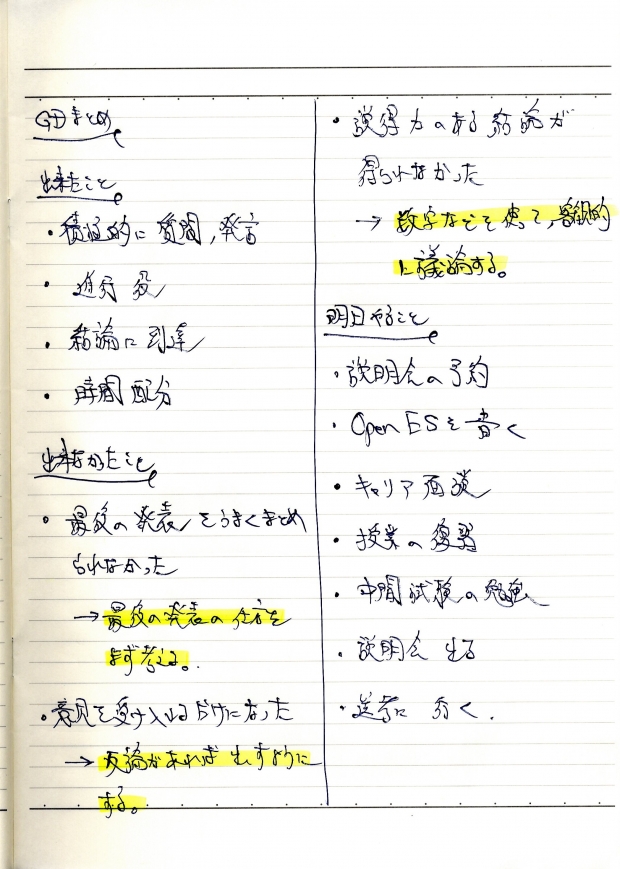 GDまとめ
出来たこと
・積極的に質問,発言
・進行役
・結論に到達
・時間配分
出来なかったこと
・最後の発表をうまくまとめ
られなかった
→最後の発表の仕方を
まず考える。
・意見を受け入れるだけになった
→反論があれば出すように
する。
・説得力のある結論が
得られなかった
→数字などを使って,客観的
に議論する。
明日やること
・説明会の予約
・Open ESを書く
・キャリア面談
・授業の復習
・中間試験の勉強
・説明会 出る
・選考に行く.